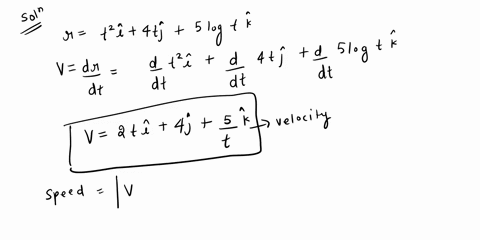 Solⁿ
r = t²î + 4tĵ + 5 log t k̂
V = dr/dt = d/dt t²î + d/dt 4tĵ + d/dt 5 log t k̂
V = 2tî + 4ĵ + 5/t k̂ → velocity
Speed = |V